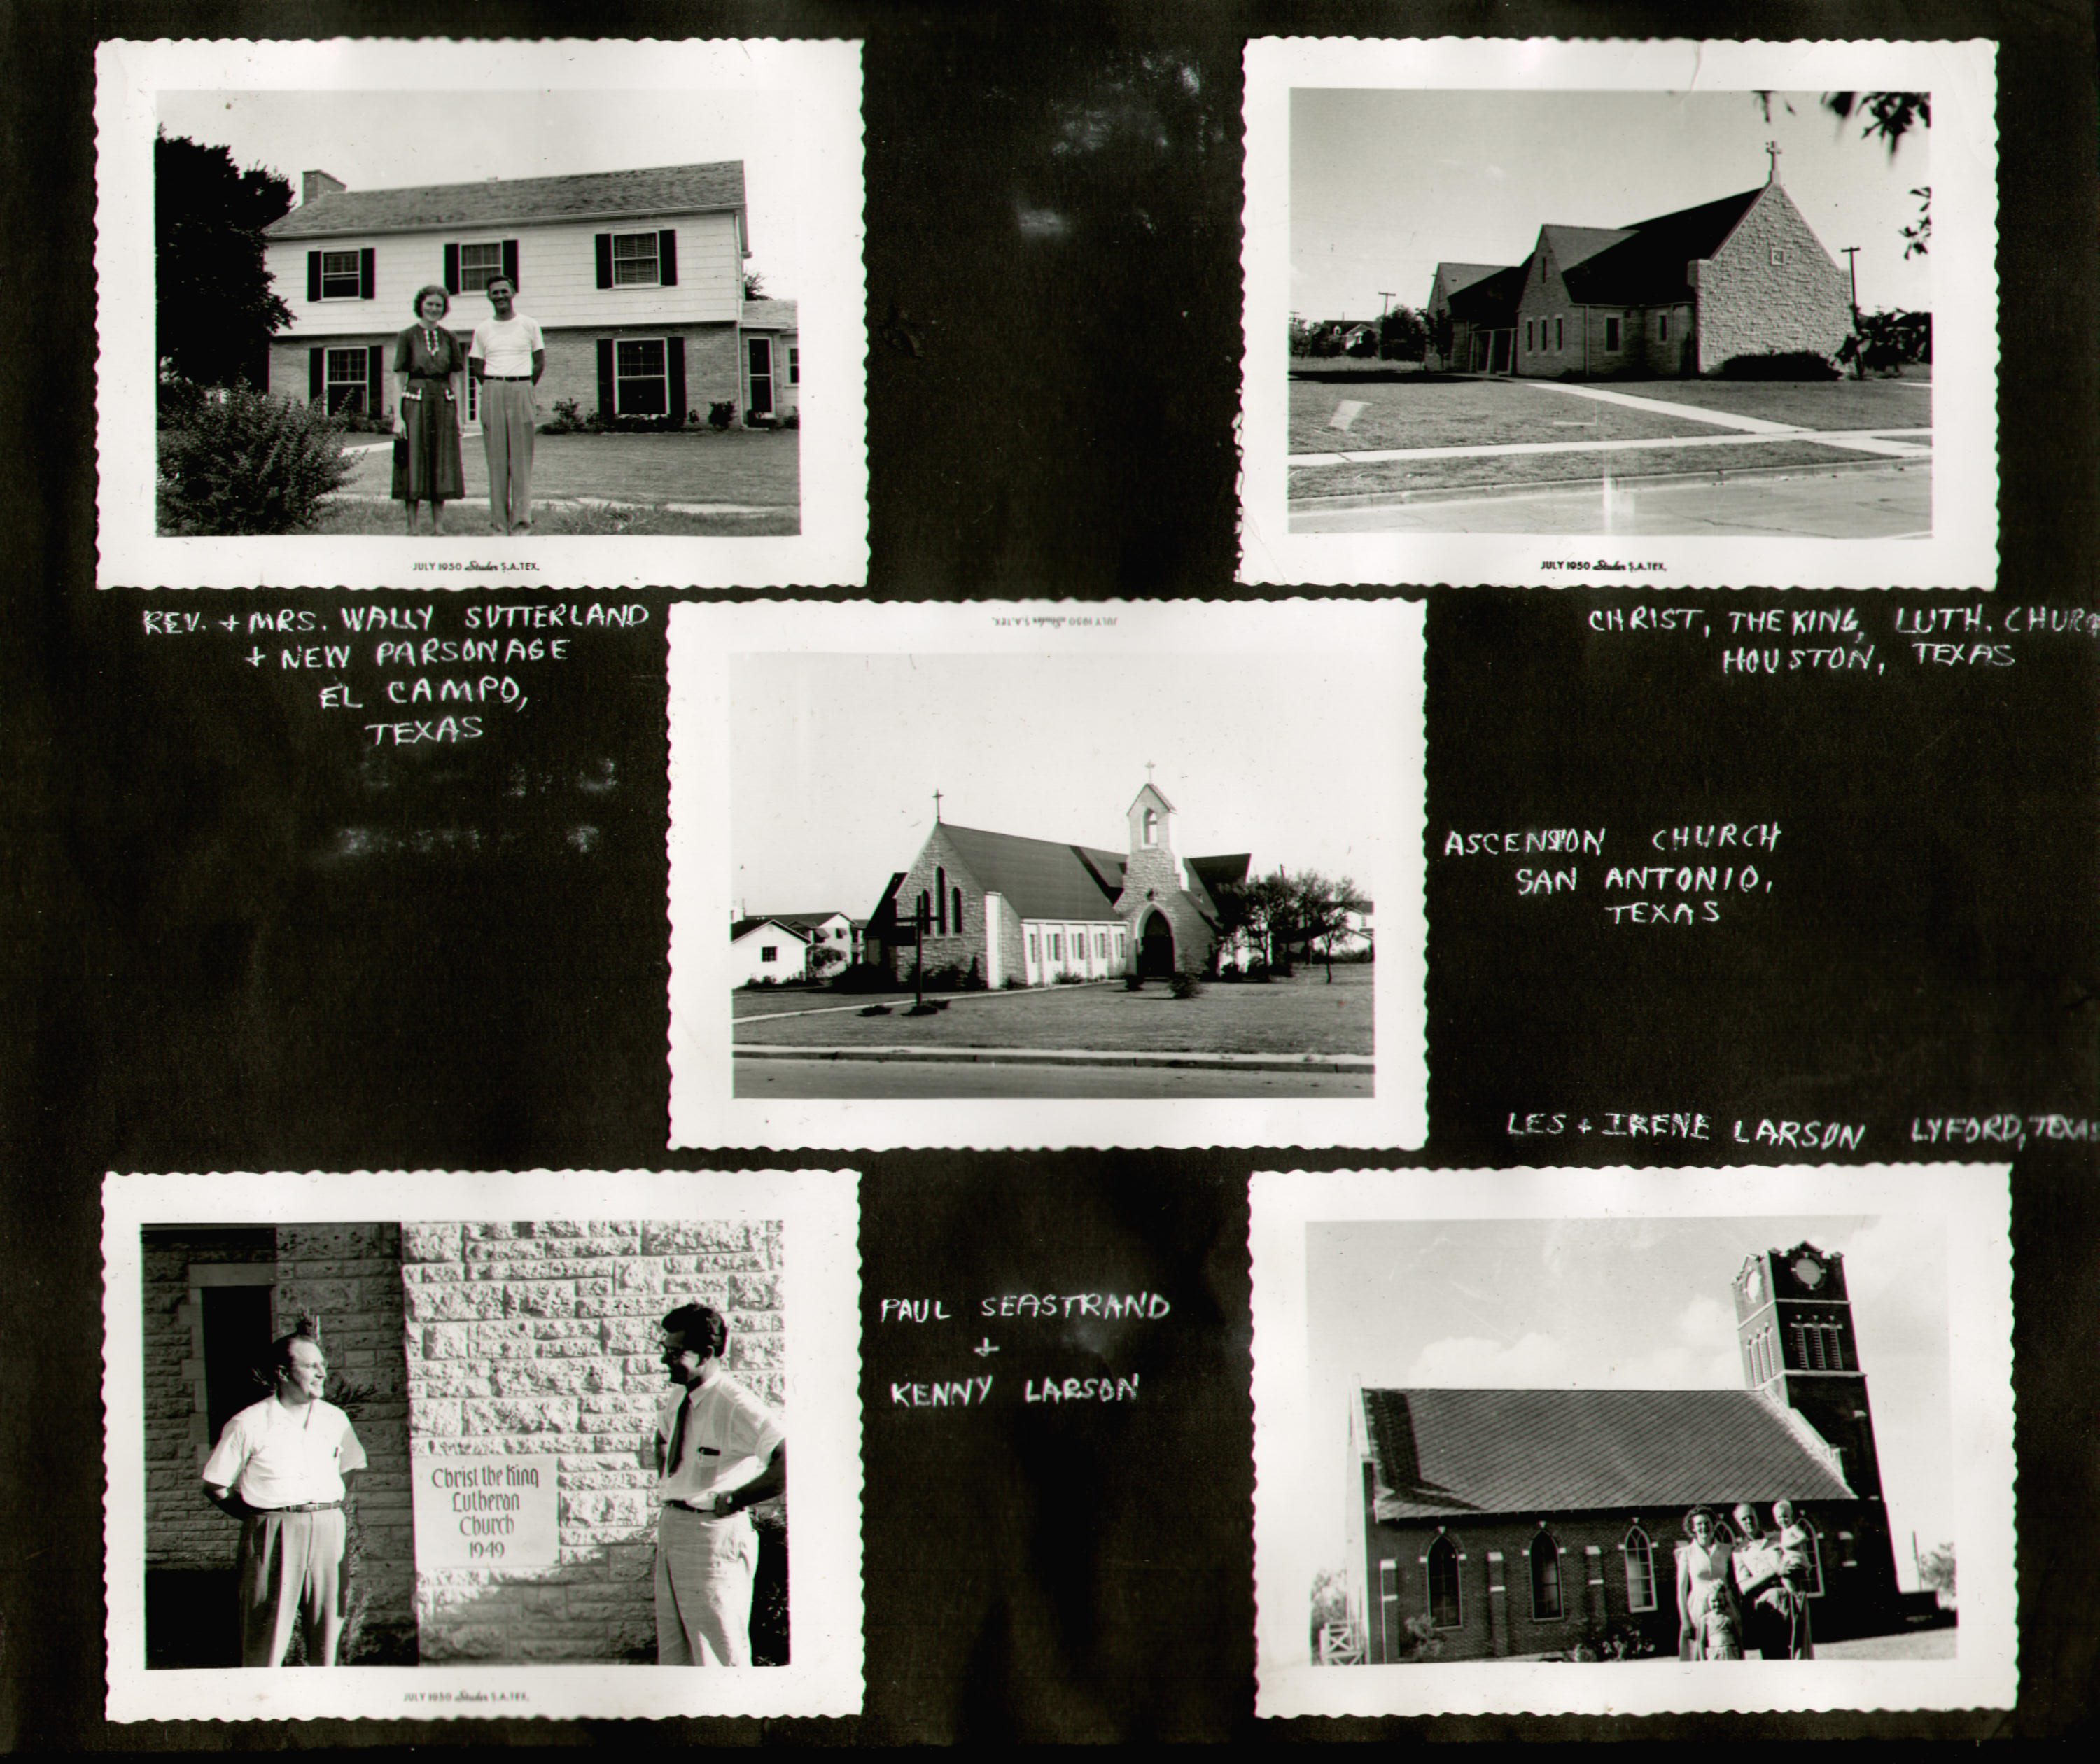 JULY 1950 Studer S.A.TEX.
JULY 1950 Studer S.A.TEX.
REV. + MRS. WALLY SUTTERLAND
+ NEW PARSONAGE
EL CAMPO,
TEXAS
JULY 1950 Studer S.A.TEX.
CHRIST, THE KING, LUTH. CHURC
HOUSTON, TEXAS
ASCENSION CHURCH
SAN ANTONIO,
TEXAS
LES + IRENE LARSON LYFORD, TEXAS
PAUL SEASTRAND
+
KENNY LARSON
Christ the King
Lutheran
Church
1949
JULY 1950 Studer S.A.TEX.